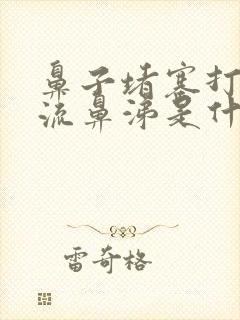 鼻子堵塞打
流鼻涕是什
雷奇格